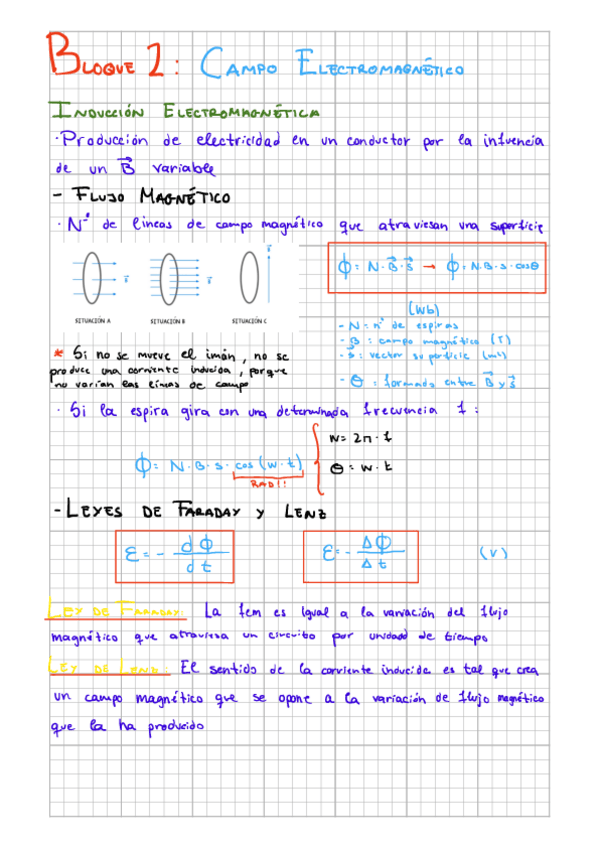 BLOQUE 2: CAMPO ELECTROMAGNÉTICO
INDUCCIÓN ELECTROMAGNÉTICA
· Producción de electricidad en un conductor por la influencia
de un B⃗ variable
- FLUJO MAGNÉTICO
· Nº de líneas de campo magnético que atraviesan una superficie
ϕ = N · B⃗ · S⃗ → ϕ = N · B · s · cosθ
SITUACIÓN A SITUACIÓN B SITUACIÓN C
(Wb)
- N = nº de espiras
- B : campo magnético (T)
- S⃗ : vector superficie (m²)
- θ : formado entre B⃗ y S⃗
* Si no se mueve el imán, no se
produce una corriente inducida, porque
no varían las líneas de campo
· Si la espira gira con una determinada frecuencia f :
ϕ = N · B · s · cos (w · t)
RAD!!
w = 2π · f
θ = w · t
- LEYES DE FARADAY Y LENZ
ε = - dϕ / dt
ε = - Δϕ / Δt
(V)
LEY DE FARADAY: La fem es igual a la variación del flujo
magnético que atraviesa un circuito por unidad de tiempo
LEY DE LENZ: El sentido de la corriente inducida es tal que crea
un campo magnético que se opone a la variación de flujo magnético
que la ha producido